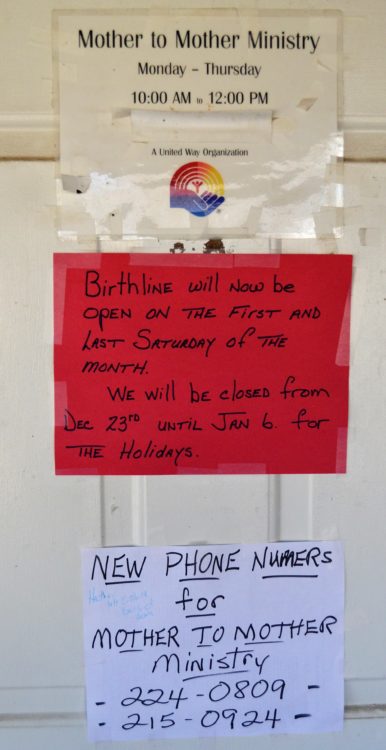 Mother to Mother Ministry
Monday – Thursday
10:00 AM to 12:00 PM
A United Way Organization
Birthline will now be
open on the First and
Last Saturday of the
month.
We will be closed from
Dec 23rd until Jan 6. for
the Holidays.
NEW PHONE NUMERS
for
MOTHER TO MOTHER
Ministry
- 224-0809 -
- 215-0924 -